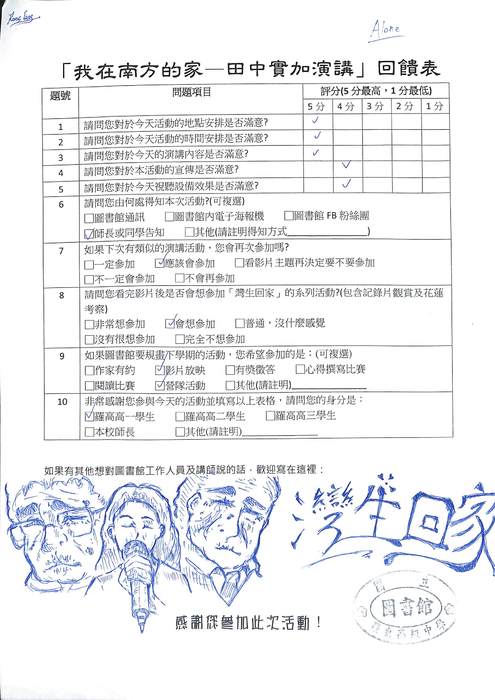 Alone
「我在南方的家—田中實加演講」回饋表
題號 問題項目 評分(5分最高，1分最低)
5分 4分 3分 2分 1分
1 請問您對於今天活動的地點安排是否滿意? ✓
2 請問您對於今天活動的時間安排是否滿意? ✓
3 請問您對於今天的演講內容是否滿意? ✓
4 請問您對於本活動的宣傳是否滿意? ✓
5 請問您對於今天視聽設備效果是否滿意? ✓
6 請問您由何處得知本次活動?(可複選)
□圖書館通訊 □圖書館內電子海報機 □圖書館 FB 粉絲團
☑師長或同學告知 □其他(請註明得知方式________________)
7 如果下次有類似的演講活動，您會再次參加嗎?
□一定參加 ☑應該會參加 □看影片主題再決定要不要參加
□不一定會參加 □不會再參加
8 請問您看完影片後是否會想參加「灣生回家」的系列活動?(包含記錄片觀賞及花蓮
考察)
□非常想參加 ☑會想參加 □普通，沒什麼感覺
□沒有很想參加 □完全不想參加
9 如果圖書館要規畫下學期的活動，您希望參加的是：(可複選)
□作家有約 ☑影片放映 □有獎徵答 □心得撰寫比賽
□閱讀比賽 ☑營隊活動 □其他(請註明)________________
10 非常感謝您參與今天的活動並填寫以上表格，請問您的身份是：
☑羅高高一學生 □羅高高二學生 □羅高高三學生
□本校師長 □其他(請註明)________________
如果有其他想對圖書館工作人員及講師說的話，歡迎寫在這裡：
灣生回家
國立
圖書館
感謝您參加此次活動！